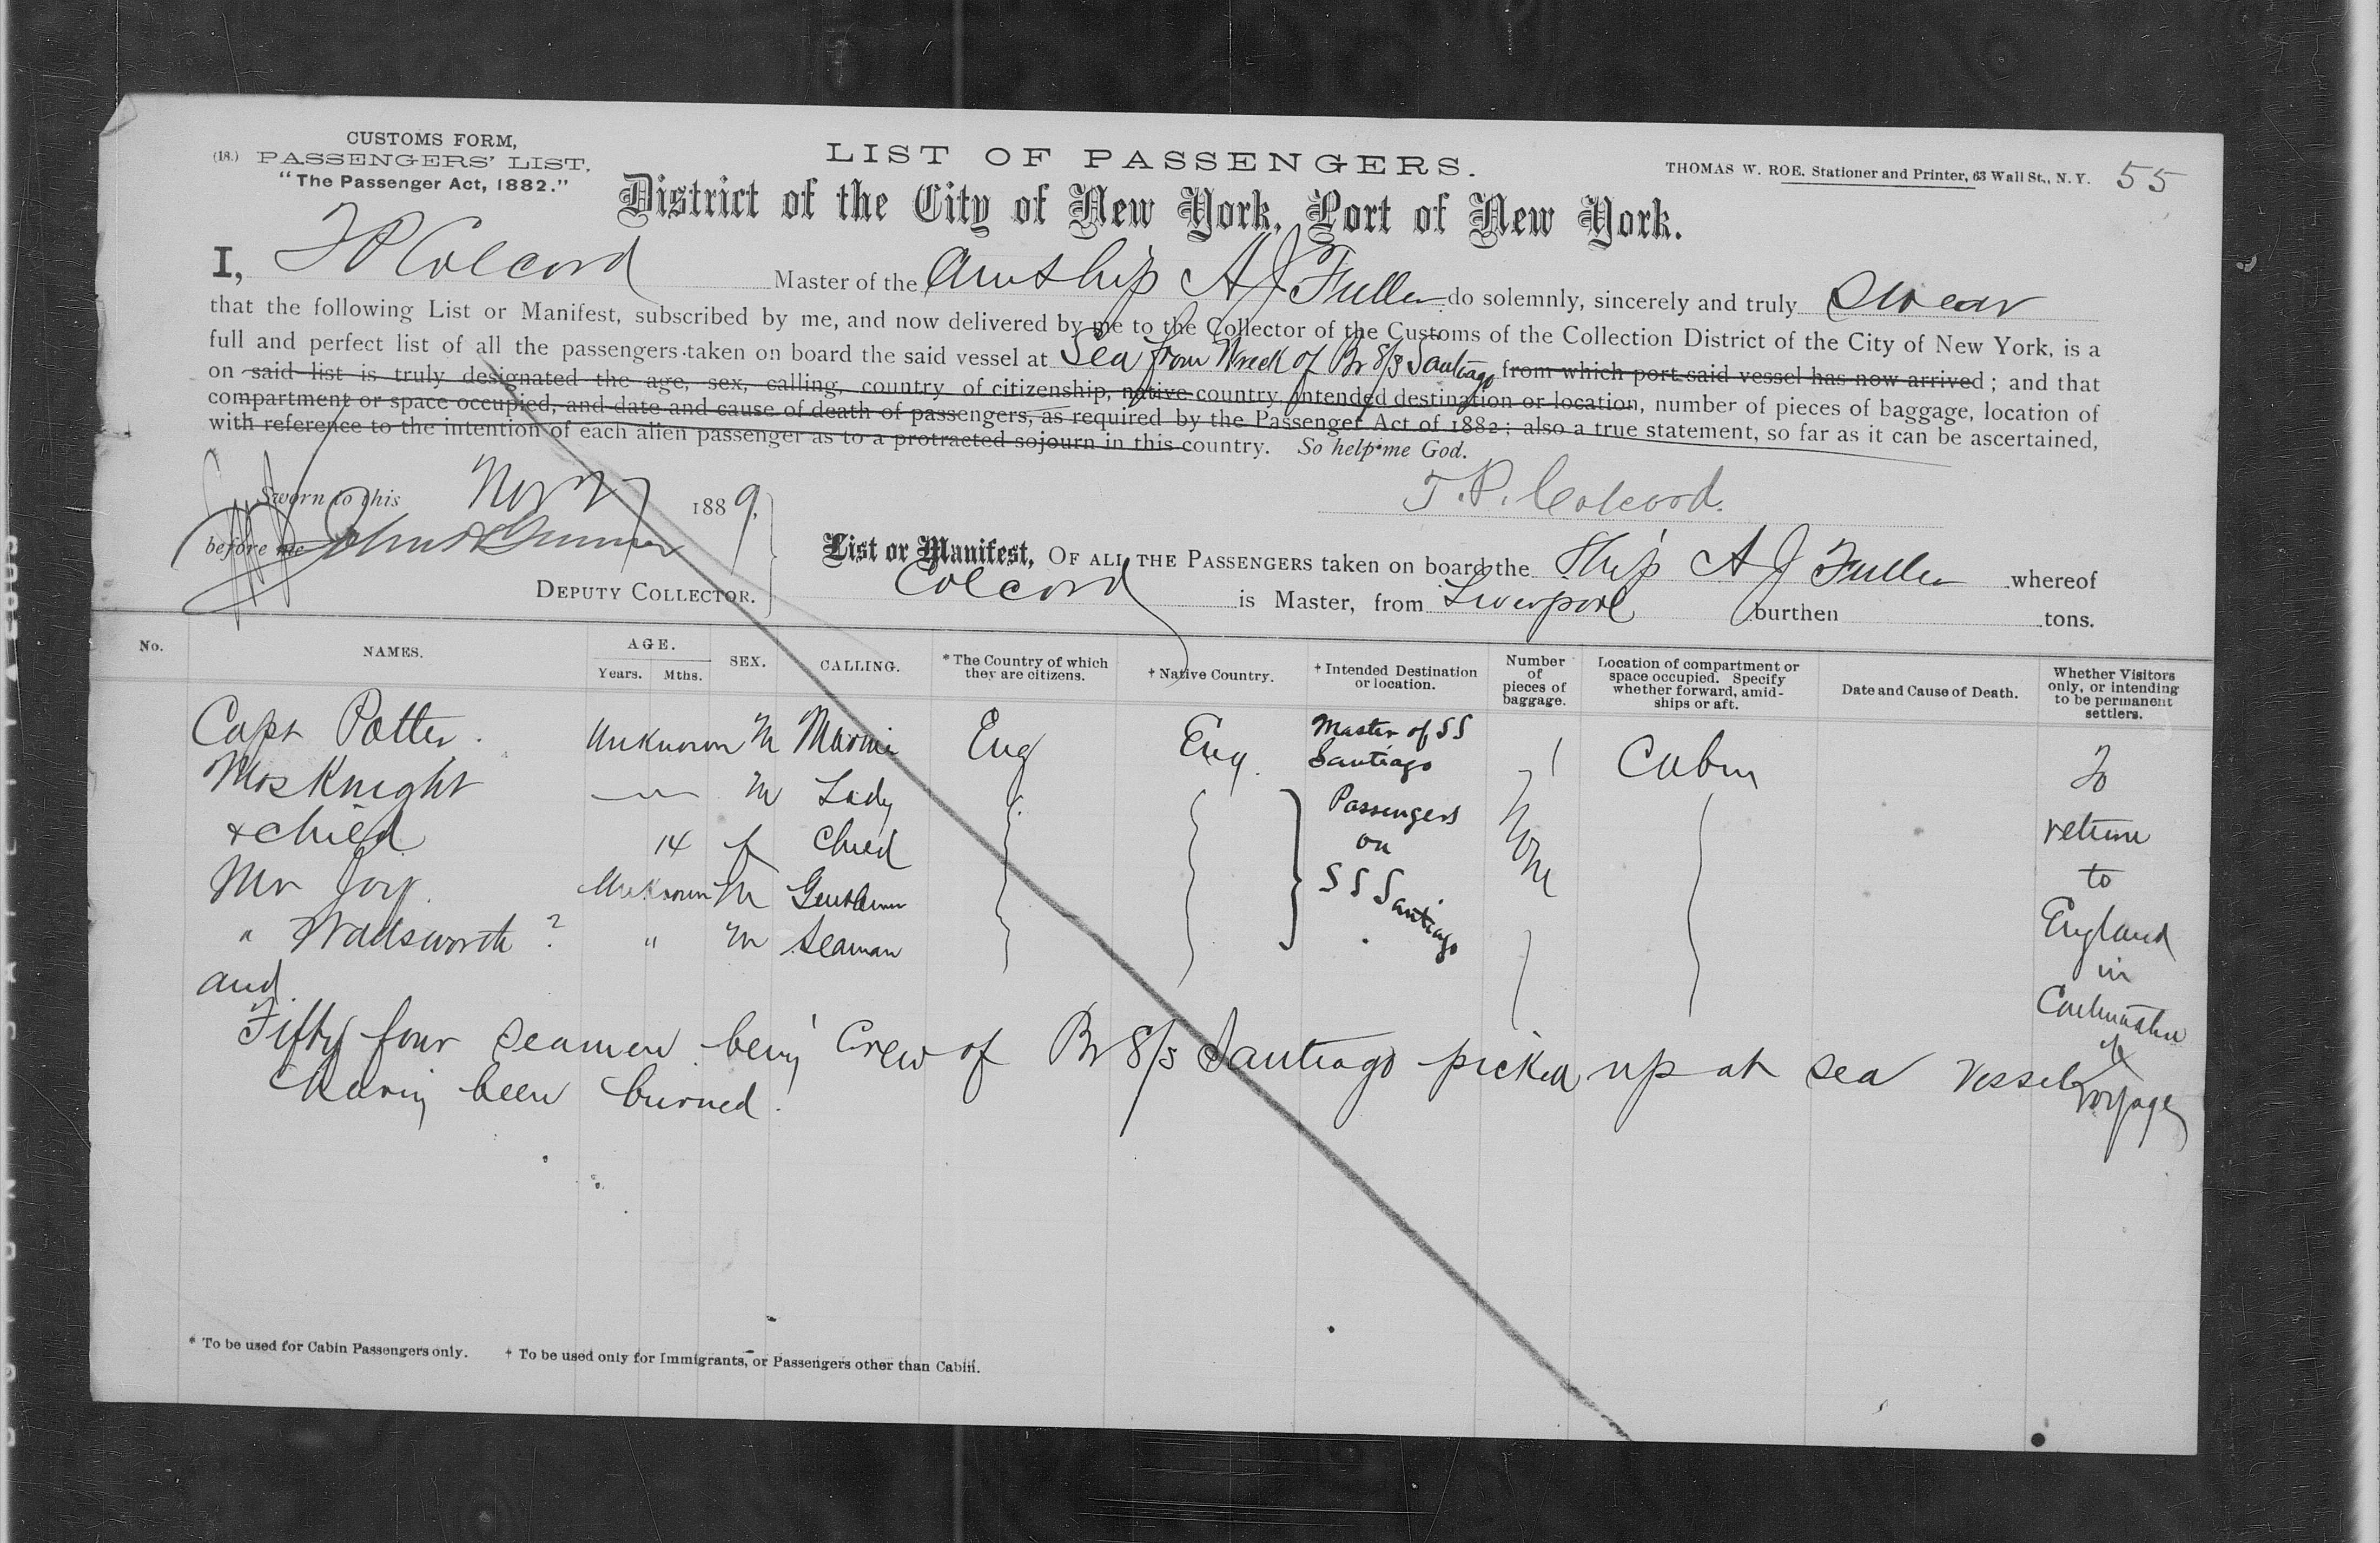 CUSTOMS FORM,
(18.) PASSENGERS' LIST.
"The Passenger Act, 1882."
LIST OF PASSENGERS.
THOMAS W. ROE, Stationer and Printer, 63 Wall St., N. Y.
55
District of the City of New York, Port of New York.
I, T P Colcord Master of the Am Ship A J Fuller do solemnly, sincerely and truly Swear
that the following List or Manifest, subscribed by me, and now delivered by me to the Collector of the Customs of the Collection District of the City of New York, is a
full and perfect list of all the passengers taken on board the said vessel at Sea from Wreck of Br S/S Santiago from which port said vessel has now arrived; and that
on said list is truly designated the age, sex, calling, country of citizenship, native country, intended destination or location, number of pieces of baggage, location of
compartment or space occupied, and date and cause of death of passengers, as required by the Passenger Act of 1882; also a true statement, so far as it can be ascertained,
with reference to the intention of each alien passenger as to a protracted sojourn in this country. So help me God.
Sworn to this Nov 27 1889,
T. P. Colcord.
before me John
DEPUTY COLLECTOR.
List or Manifest, OF ALL THE PASSENGERS taken on board the Ship A J Fuller whereof
Colcord is Master, from Liverpool burthen tons.
No. NAMES. AGE. Years. Mths. SEX. CALLING. *The Country of which they are citizens. † Native Country. † Intended Destination or location. Number of pieces of baggage. Location of compartment or space occupied. Specify whether forward, amidships or aft. Date and Cause of Death. Whether Visitors only, or intending to be permanent settlers.
Capt Potter. Unknown M Eng Eng. Master of SS Santiago 1 Cabin To
Mrs Knight M Lady Passengers None return
+ child 14 f Child on to
Mr Joy. Unknown M Gentleman S S Santiago England
" Wadsworth ? " M Seaman in
and Continuation
Fifty four seamen being Crew of Br S/S Santiago picked up at sea Vessel of
having been burned. voyage
* To be used for Cabin Passengers only. † To be used only for Immigrants, or Passengers other than Cabin.